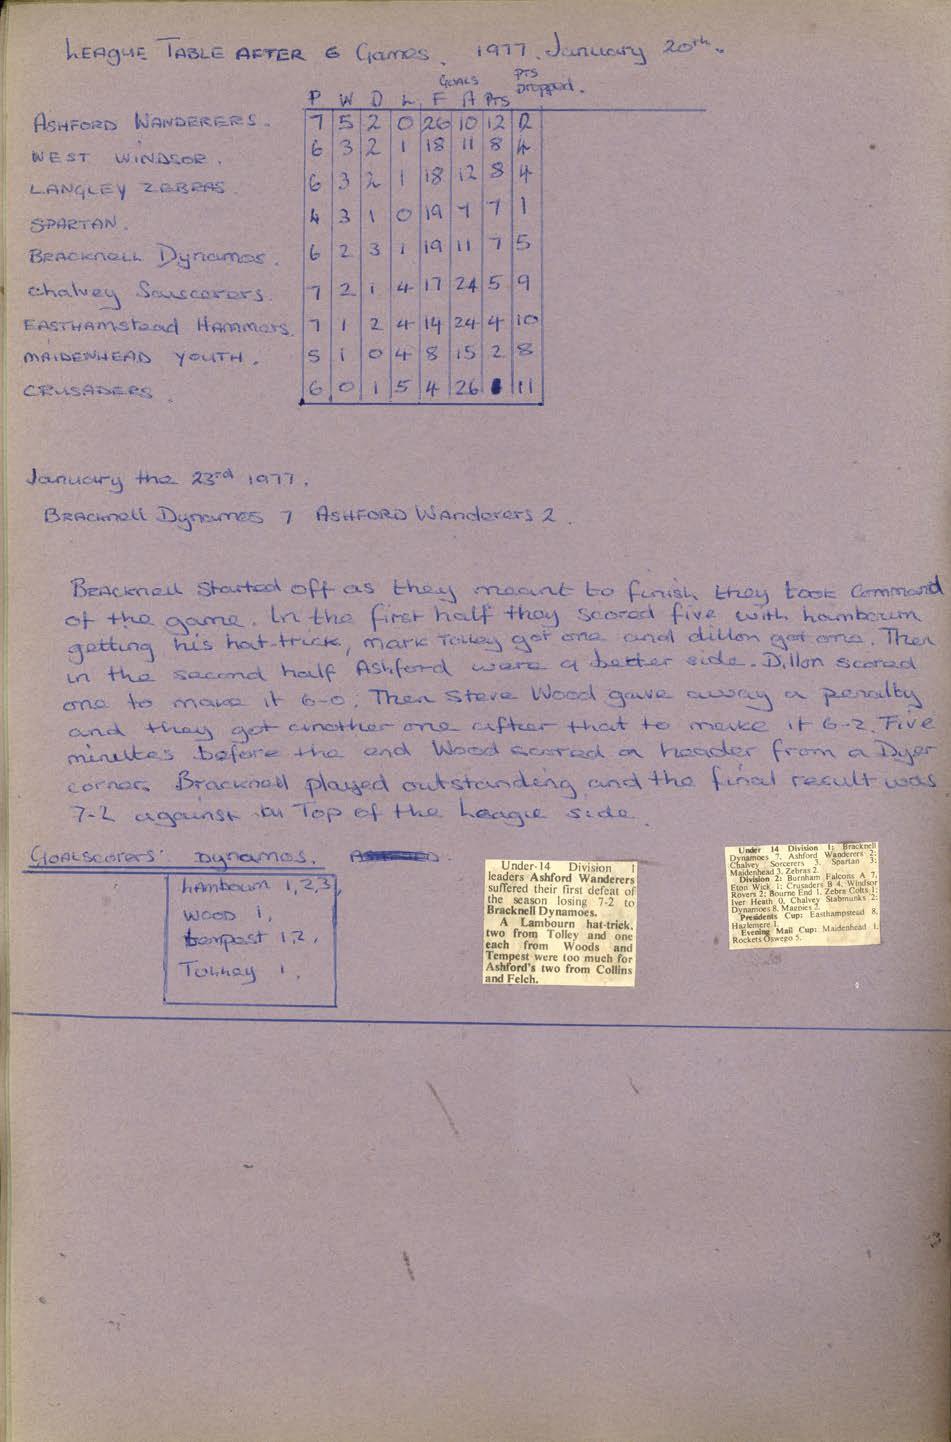 LEAGUE TABLE AFTER 6 Games. 1977. January 20th.
GOALS PTS Dropped.
P W D L F A PTS
ASHFORD WANDERERS. 7 5 2 0 26 10 12 2
WEST WINDSOR. 6 3 2 1 18 11 8 4
LANGLEY ZEBRAS. 6 3 2 1 18 12 8 4
SPARTAN. 4 3 1 0 19 7 7 1
BRACKNELL Dynamos. 6 2 3 1 19 11 7 5
Chalvey Sauscerers. 7 2 1 4 17 24 5 9
EASTHAMstead HAMMers. 7 1 2 4 14 24 4 10
MAIDENHEAD YOUTH. 5 1 0 4 8 15 2 8
CRUSADERS. 6 0 1 5 4 26 1 11
January the 23rd 1977.
BRACknell Dynamos 7 ASHFORD WAnderers 2.
BRACKnell Started off as they meant to finish they took Command
of the game. In the first half they scored five with lambourn
getting his hat-trick, mark Tolley got one and dillon got one. Then
in the second half Ashford were a better side. Dillon scored
one to make it 6-0. Then Steve Wood gave away a penalty
and they got another one after that to make it 6-2. Five
minutes before the end Wood scored a header from a Dyer
corner. Bracknell played outstanding and the final result was
7-2 against a Top of the League side.
GOALSCORERS: Dynamos.
Lambourn 1,2,3,
WOOD 1,
tempest 1,2,
TOLLEY 1,
Under-14 Division 1
leaders Ashford Wanderers
suffered their first defeat of
the season losing 7-2 to
Bracknell Dynamoes.
A Lambourn hat-trick,
two from Tolley and one
each from Woods and
Tempest were too much for
Ashford's two from Collins
and Felch.
Under 14 Division 1: Bracknell
Dynamoes 7, Ashford Wanderers 2;
Chalvey Sorcerers 3, Spartan 3;
Maidenhead 3, Zebras 2.
Division 2: Burnham Falcons A 7,
Eton Wick 1; Crusaders B 4, Windsor
Rovers 2; Bourne End 1, Zebra Colts 1;
Iver Heath 0, Chalvey Stabmunks 2;
Dynamoes 8, Magpies 2.
Presidents Cup: Easthampstead 8,
Hazlemere 1.
Evening Mail Cup: Maidenhead 1,
Rockets Oswego 5.